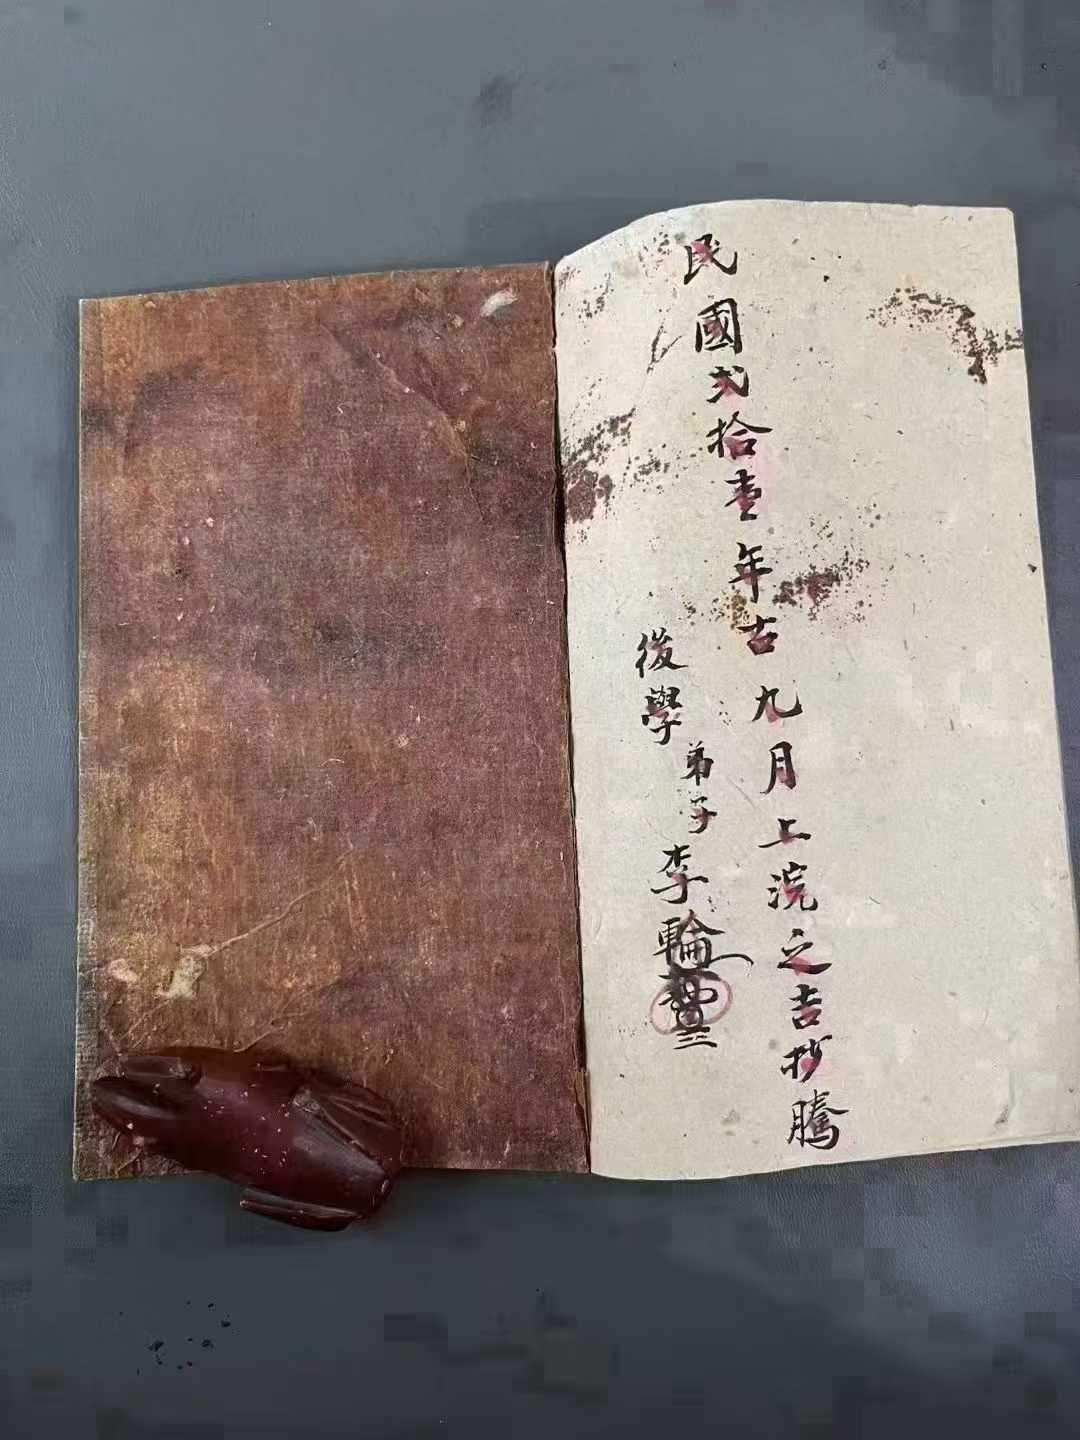 民國弍拾壹年古九月上浣之吉抄騰
後學弟子李輪